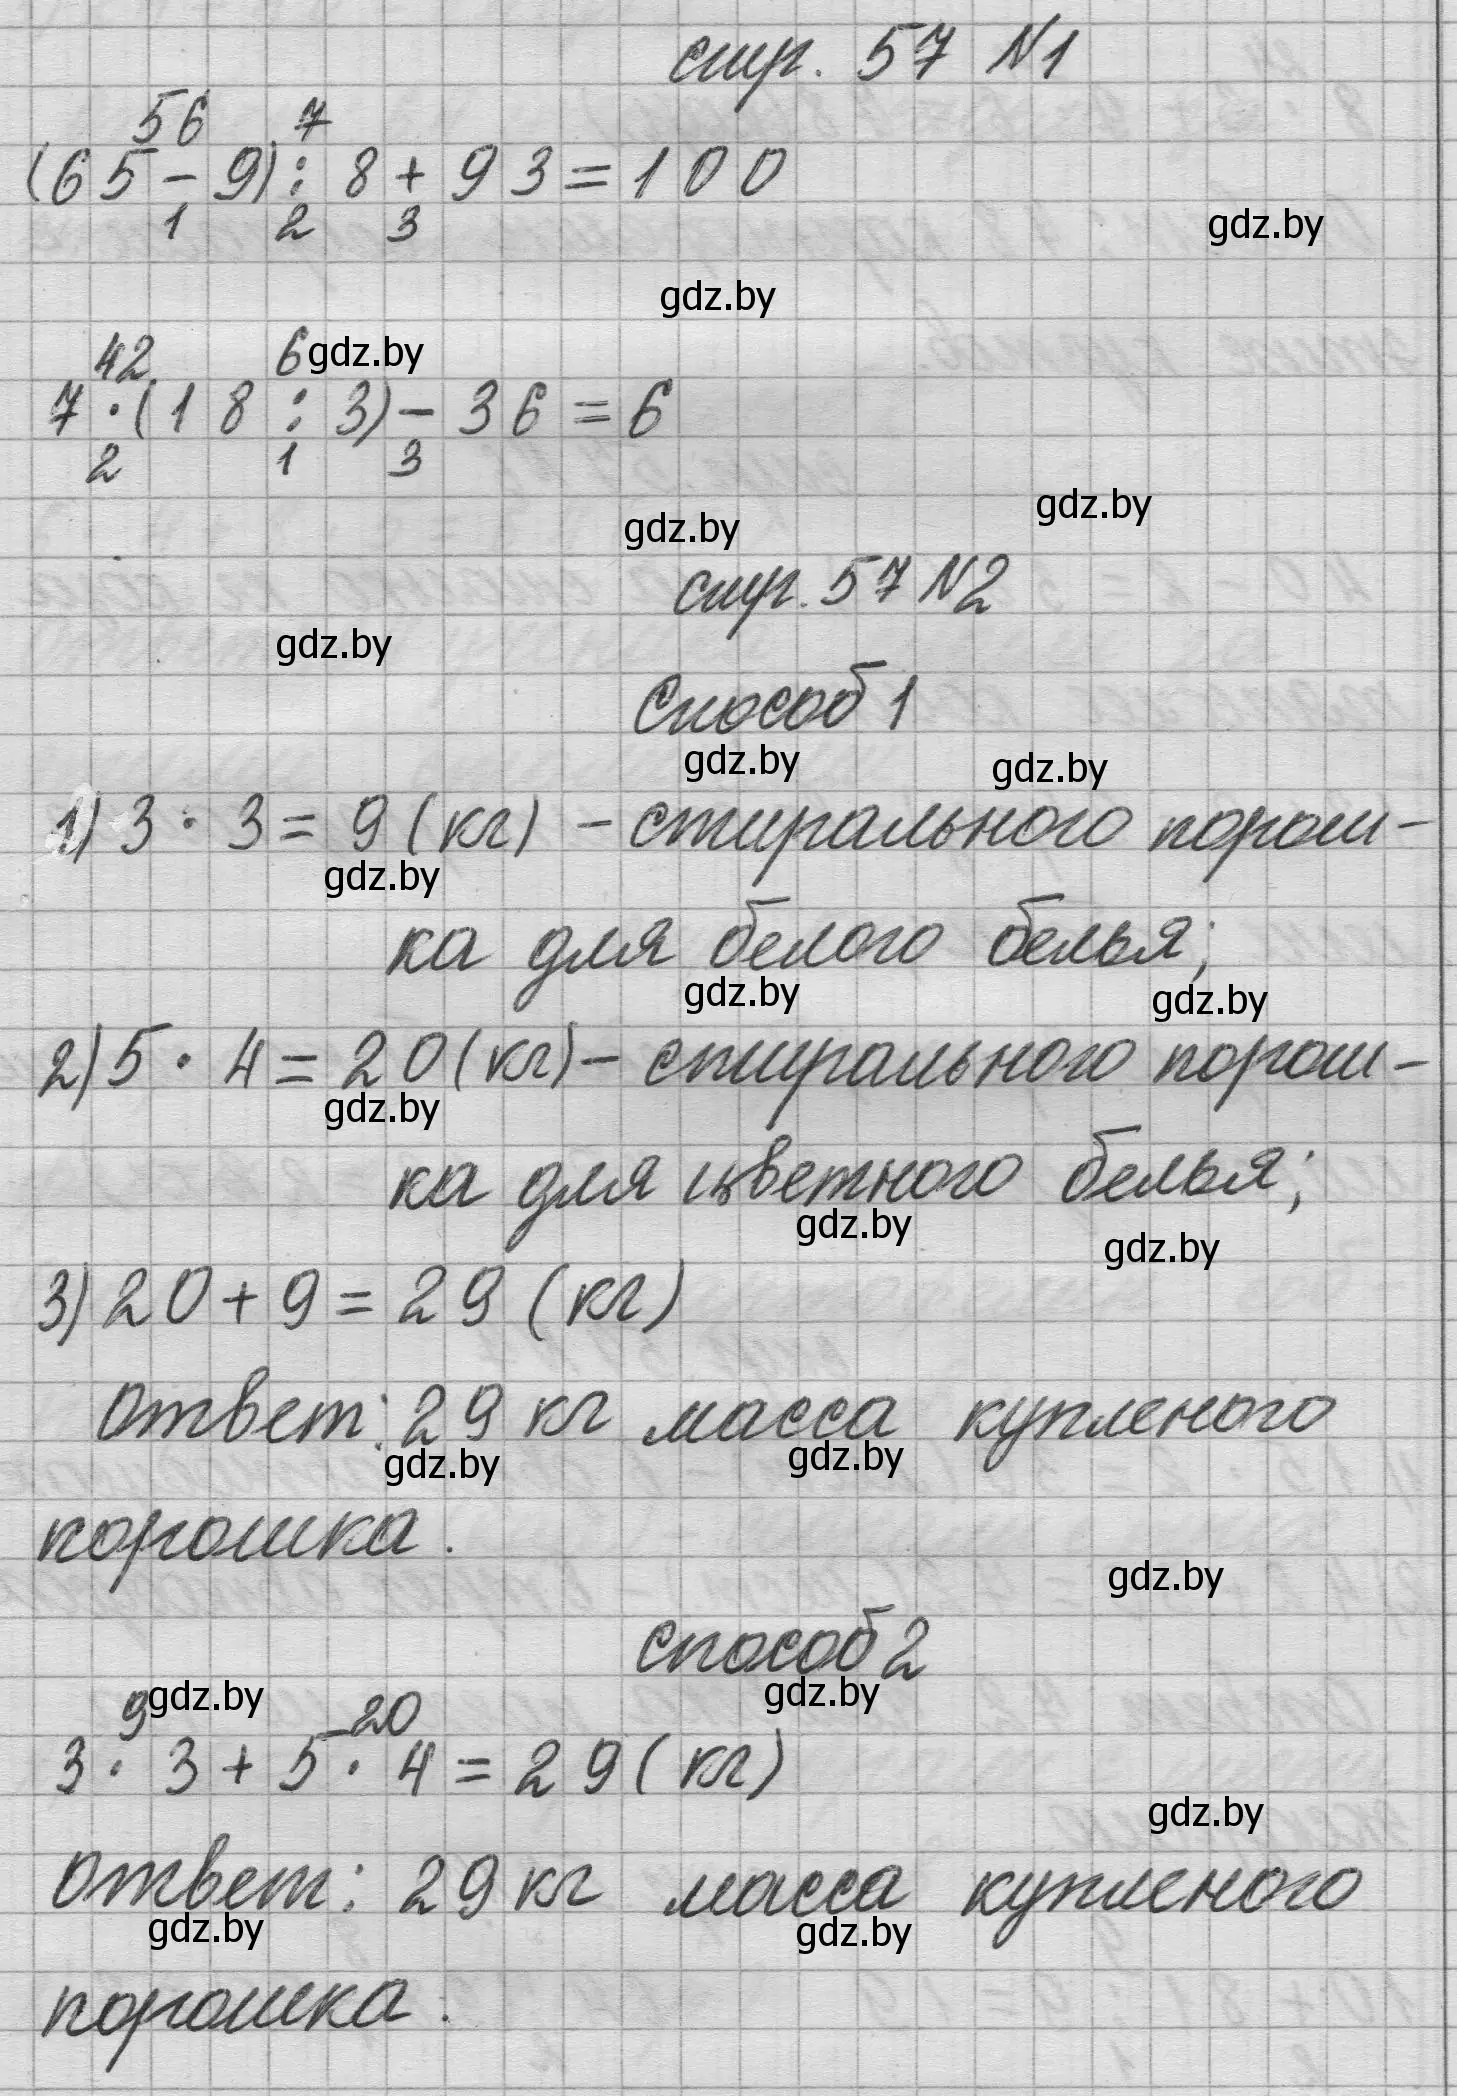 стр. 57 №1
56 7
(65-9):8+93=100
1 2 3
gdz.by
gdz.by
42 6 gdz.by
7·(18:3)-36=6
2 1 3
gdz.by
gdz.by
стр. 57 №2
gdz.by
Способ 1
gdz.by gdz.by
1) 3·3=9(кг) - стирального порош-
gdz.by
ка для белого белья;
gdz.by gdz.by
2) 5·4=20(кг) - стирального порош-
gdz.by
ка для цветного белья;
gdz.by gdz.by
3) 20+9=29(кг)
Ответ: 29 кг масса купленого
gdz.by gdz.by
порошка.
gdz.by
способ 2
gdz.by gdz.by
9 20
3·3+5·4=29(кг)
gdz.by
Ответ: 29 кг масса купленого
gdz.by gdz.by
порошка.